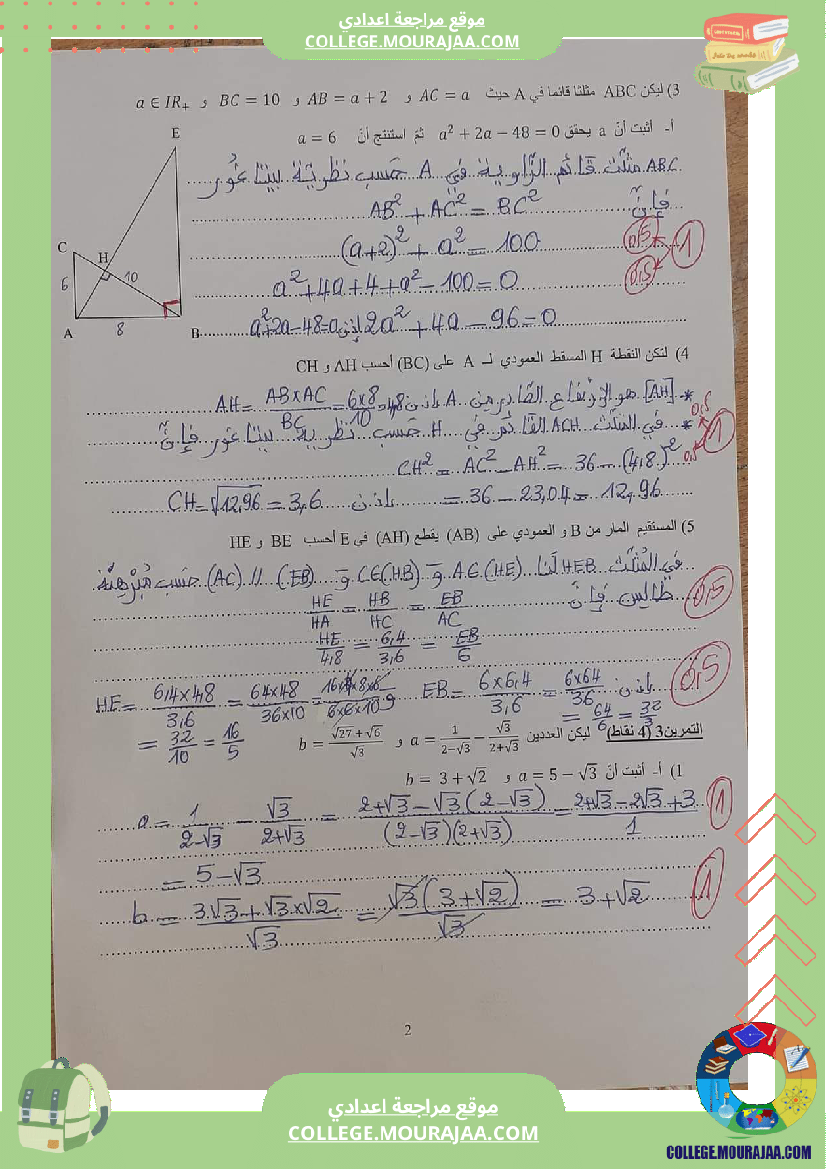 موقع مراجعة اعدادي
COLLEGE.MOURAJAA.COM
3) ليكن ABC مثلثا قائما في A حيث AC = a و AB = a + 2 و BC = 10 و a ∈ IR₊
أ- أثبت أنّ a يحقق a² + 2a − 48 = 0 ثمّ استنتج أنّ a = 6
ABC مثلّث قائم الزّاوية في A حسب نظريّة بيتاغور
فإنّ AB² + AC² = BC²
(a+2)² + a² = 100
0,5
1
a² + 4a + 4 + a² − 100 = 0
0,5
2a² + 4a − 96 = 0 إذن a²+2a−48=0
E
C
H
6
10
A
8
B
4) لتكن النقطة H المسقط العمودي لـ A على (BC) أحسب AH و CH
* [AH] هو الإرتفاع الصّادر من A إذن AH = AB×AC / BC = 6×8 / 10 = 4,8
0,5
* في المثلّث ACH القائم في H حسب نظرية بيتاغور فإنّ
1
CH² = AC² − AH² = 36 − (4,8)²
0,5
= 36 − 23,04 = 12,96 إذن CH = √12,96 = 3,6
5) المستقيم المار من B و العمودي على (AB) يقطع (AH) في E أحسب BE و HE
في المثلّث HEB لنا A∈(HE) و C∈(HB) و (EB) // (AC) حسب مبرهنة
طالس فإنّ HE/HA = HB/HC = EB/AC
0,5
HE/4,8 = 6,4/3,6 = EB/6
إذن EB = 6×6,4 / 3,6 = 6×64 / 36 = 64/6 = 32/3
0,5
HE = 6,4×4,8 / 3,6 = 64×48 / 36×10 = 16×4×8×6 / 6×6×10
= 32/10 = 16/5
التمرين3 (4 نقاط) ليكن العددين a = 1/(2−√3) − √3/(2+√3) و b = (√27+√6)/√3
1) أ- أثبت أنّ a = 5 − √3 و b = 3 + √2
a = 1/(2−√3) − √3/(2+√3) = (2+√3−√3(2−√3))/((2−√3)(2+√3)) = (2+√3−2√3+3)/1
1
= 5−√3
b = (3√3+√3×√2)/√3 = √3(3+√2)/√3 = 3+√2
1
2
موقع مراجعة اعدادي
COLLEGE.MOURAJAA.COM
COLLEGE.MOURAJAA.COM